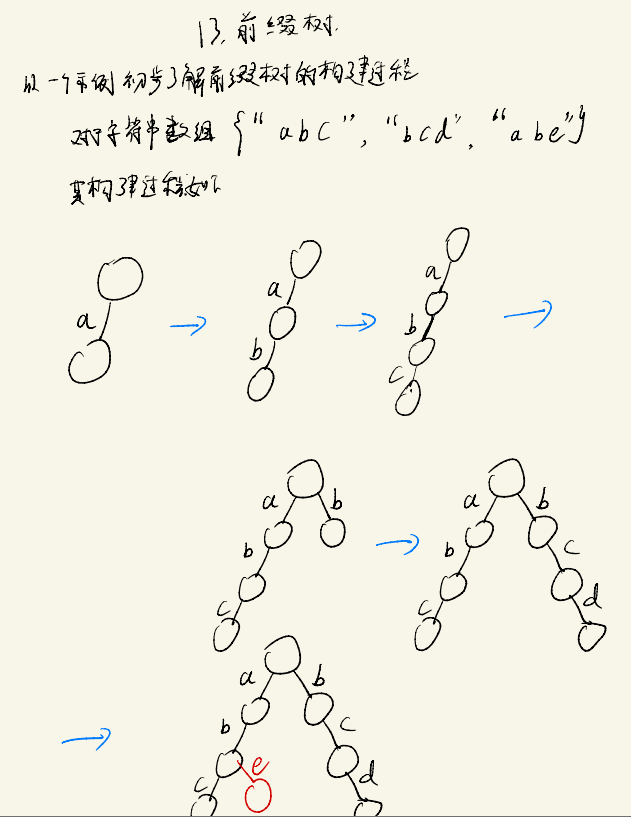 13. 前缀树.
以一个示例初步了解前缀树的构建过程
对于字符串数组 {“abc”, “bcd”, “abe”}
其构建过程如下
a
a
b
a
b
c
a b
b
c
a b
b c
c d
a b
b c
c e d